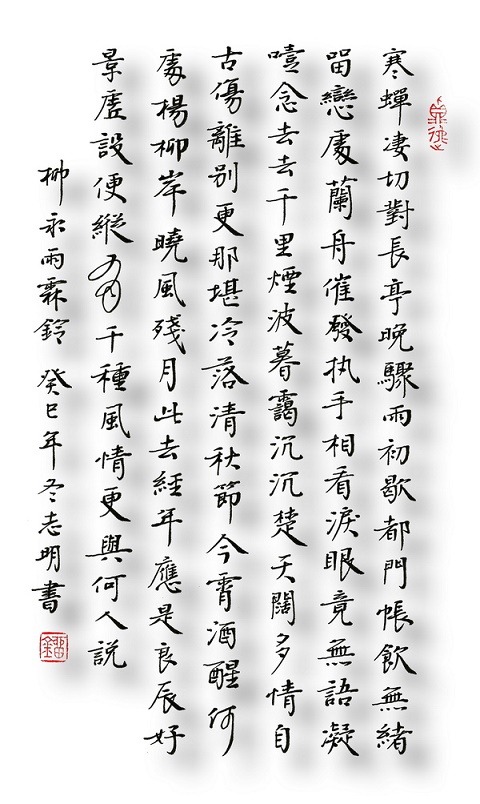 寒蟬凄切對長亭晚驟雨初歇都門帳飲無緒
留戀處蘭舟催發执手相看淚眼竟無語凝
噎念去去千里煙波暮靄沉沉楚天闊多情自
古傷離别更那堪冷落清秋節今宵酒醒何
處楊柳岸曉風殘月此去經年應是良辰好
景虛設便縱有千種風情更與何人説
柳永雨霖鈴 癸巳年冬志明書